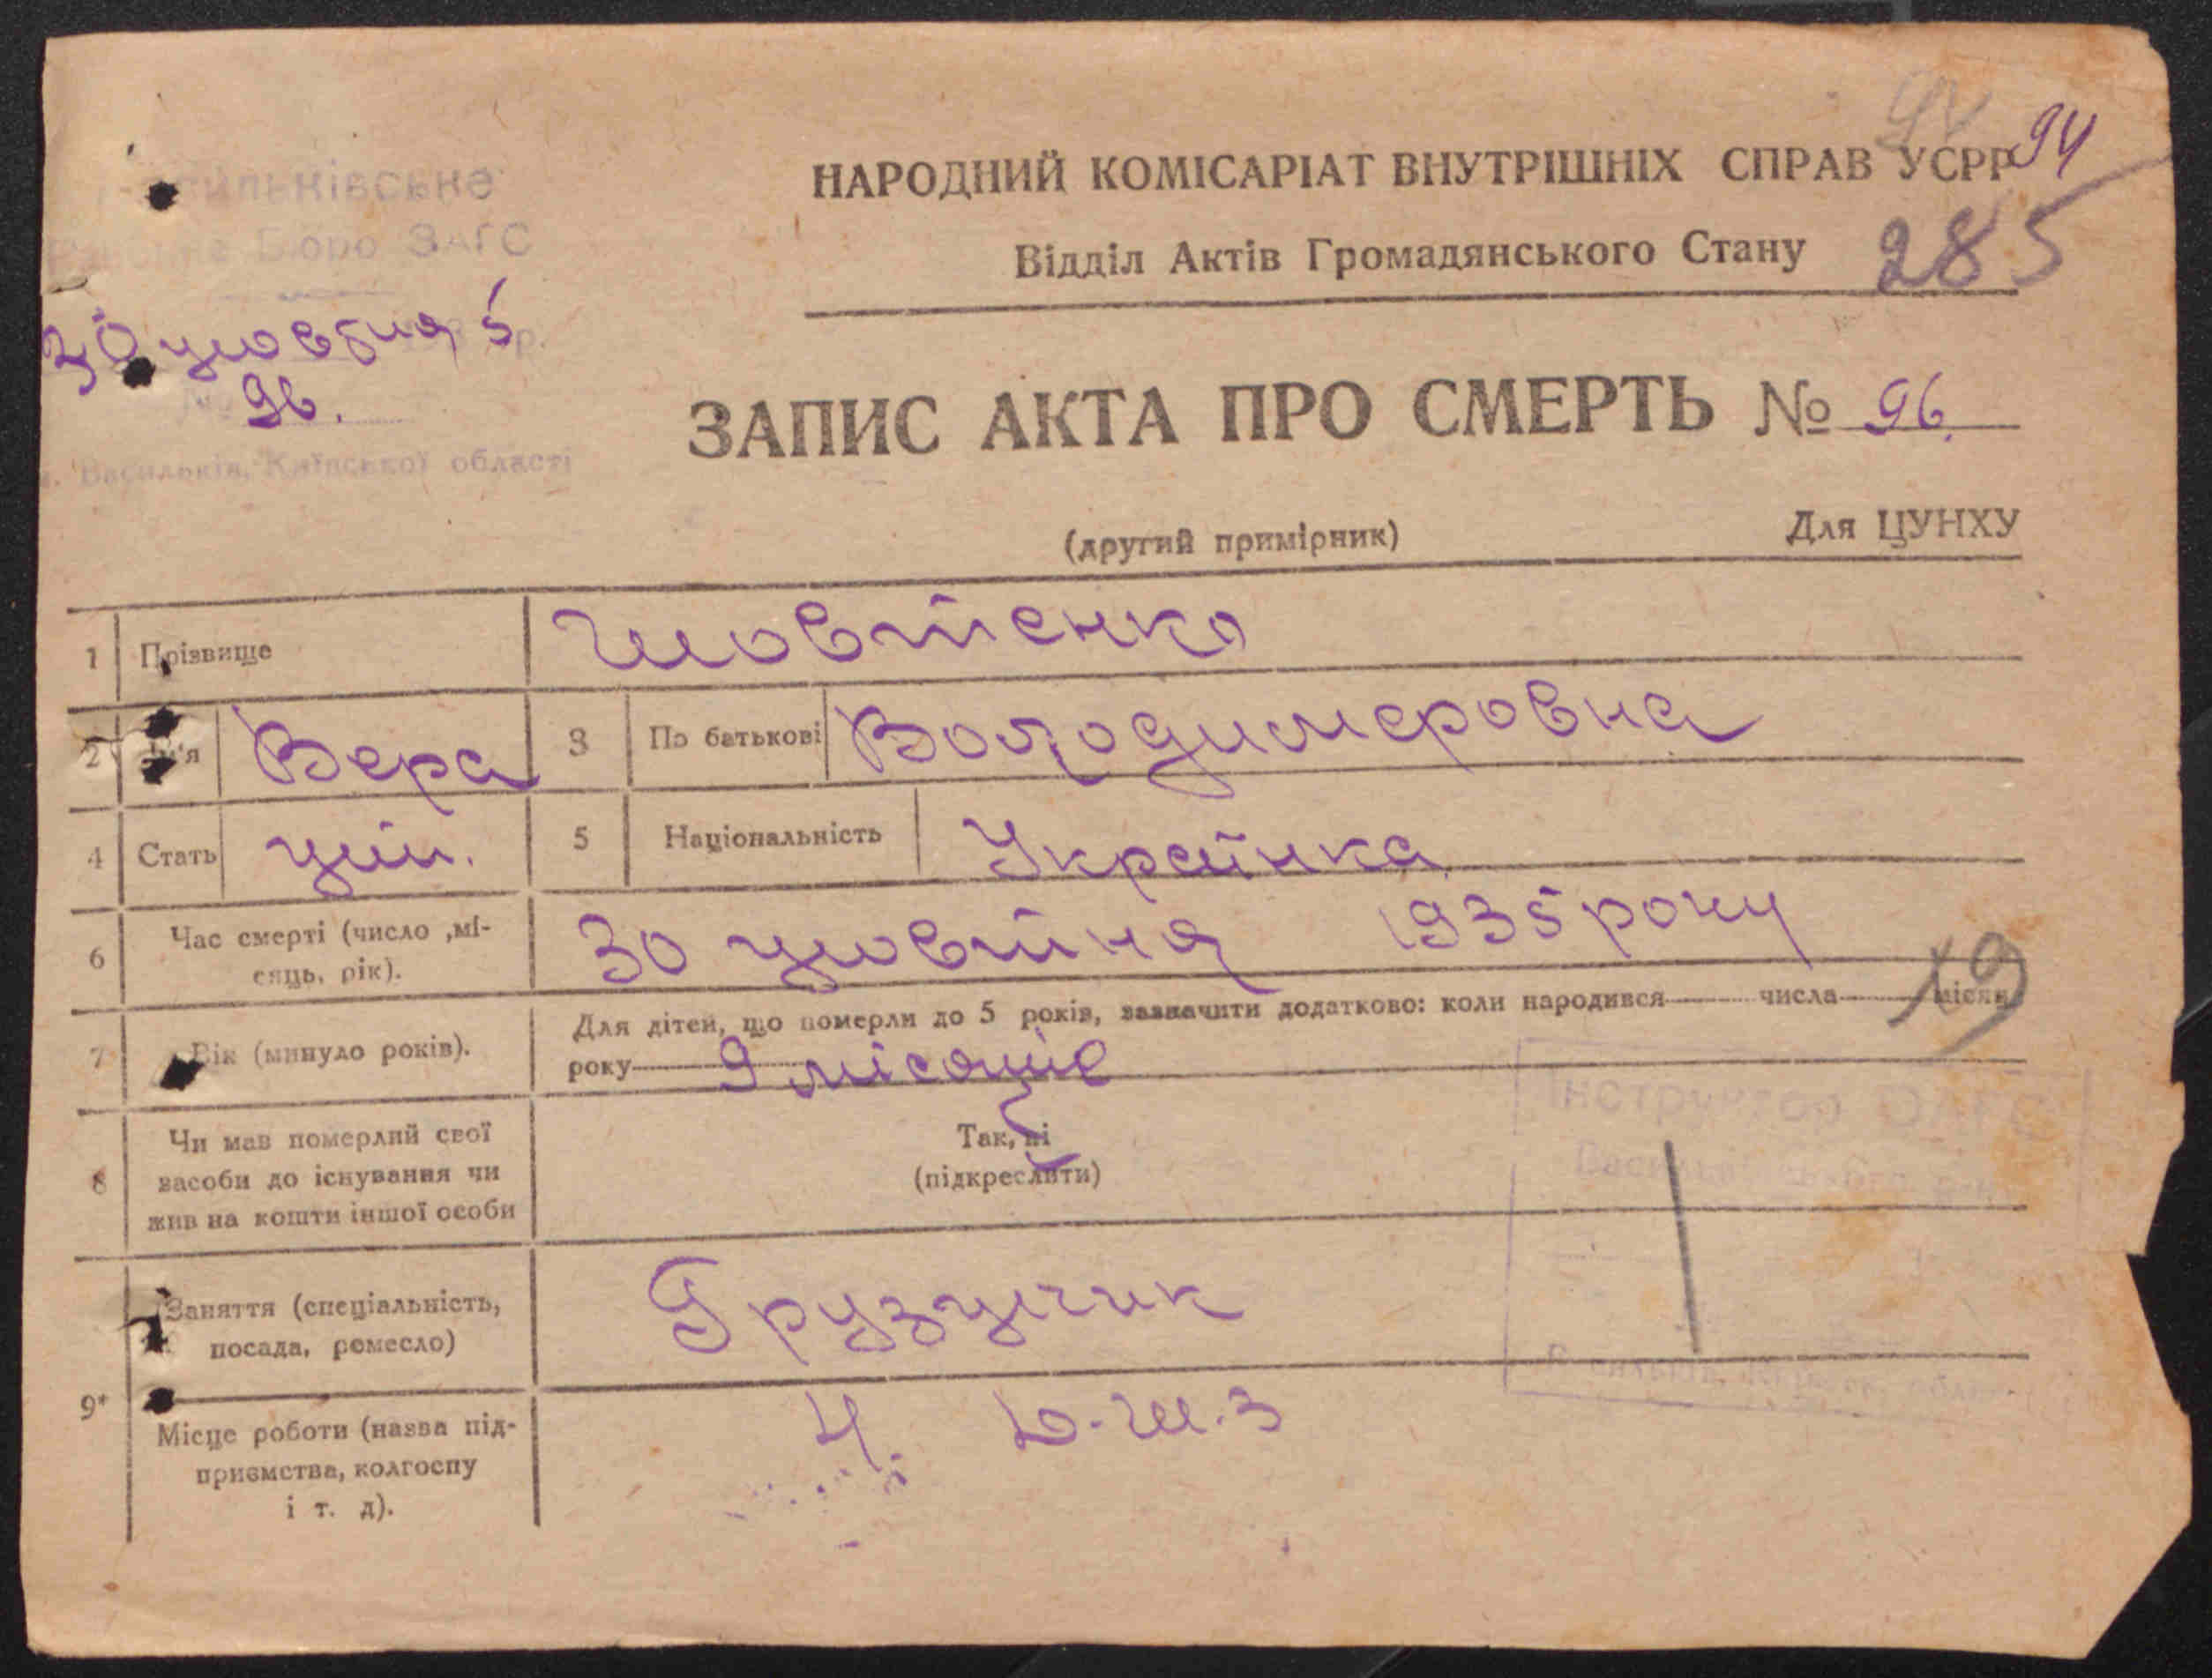 94
НАРОДНИЙ КОМІСАРІАТ ВНУТРІШНІХ СПРАВ УСРР
Відділ Актів Громадянського Стану 285
Бюро ЗАГС
30 жовтня 5 р.
№ 96.
м. Васильків, Київської області
ЗАПИС АКТА ПРО СМЕРТЬ № 96.
(другий примірник) Для ЦУНХУ
1 Прізвище Шовтенко
2 Ім'я Вера 3 По батькові Володимеровна
4 Стать жін. 5 Національність Українка
6 Час смерті (число ,місяць, рік). 30 жовтня 1935 року
19
7 Вік (минуло років). Для дітей, що померли до 5 років, зазначити додатково: коли народився числа місяця
року 9 місяців
8 Чи мав померлий свої
засоби до існування чи
жив на кошти іншої особи
Так, ні
(підкреслити)
Інструктор ЗАГС
9*
Заняття (спеціальність,
посада, ремесло)
Грузчик
Місце роботи (назва під-
приємства, колгоспу
і т. д).
Ш.З